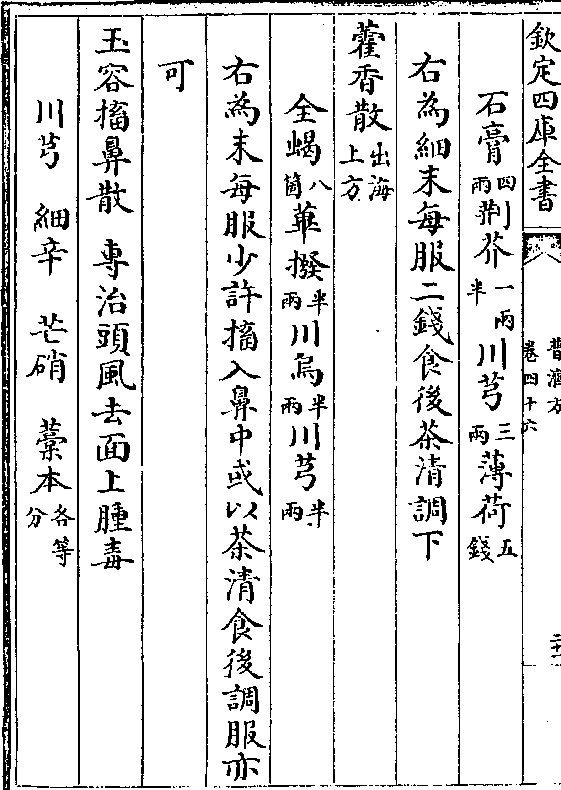 欽定四庫全書
普濟方
卷四十六
石膏四兩荆芥一兩半川芎三兩薄荷五錢
右為細末每服二錢食後茶清調下
藿香散出海上方
全蝎八箇蓽撥半兩川烏半兩川芎半兩
右為末每服少許搐入鼻中或以茶清食後調服亦
可
玉容搐鼻散 專治頭風去面上腫毒
川芎 細辛 芒硝 藁本各等分